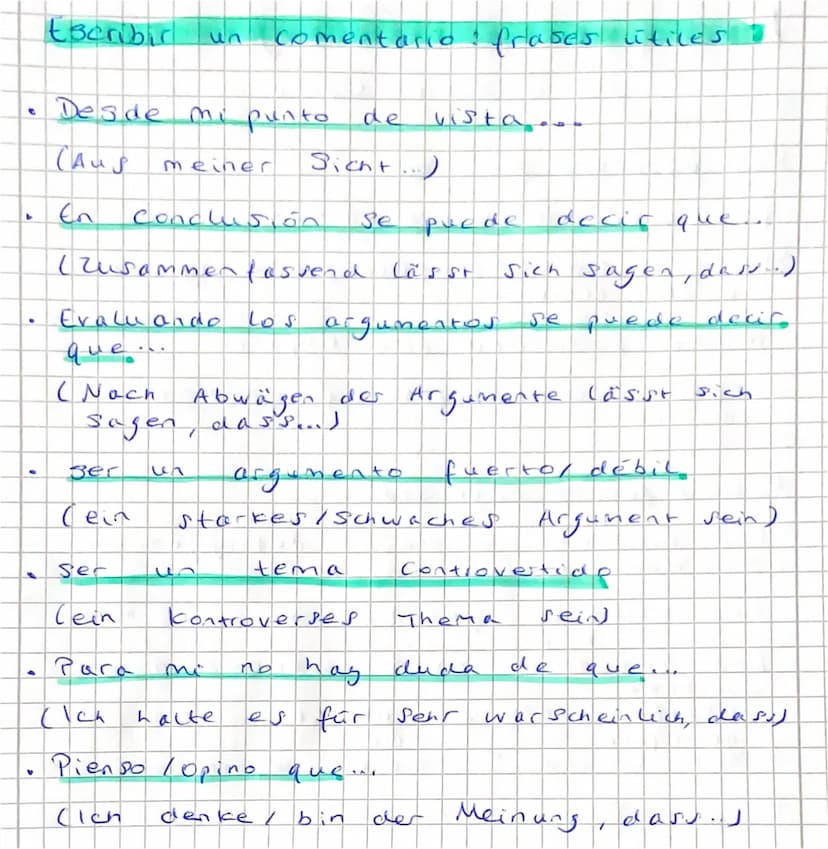 Escribir un comentario: frases útiles:
• Desde mi punto de vista....
(Aus meiner Sicht...)
• En conclusión se puede decir que...
(Zusammenfassend lässt sich sagen, dass...)
• Evaluando los argumentos se puede decir
que...
(Nach Abwägen der Argumente lässt sich
sagen, dass...)
• ser un argumento fuerto/débil
(ein starkes/schwaches Argument sein)
• ser un tema controvertido
(ein kontroverses Thema sein)
• Para mi no hay duda de que...
(Ich halte es für sehr warscheinlich, dass)
• Pienso/opino que...
(Ich denke/ bin der Meinung, dass...)